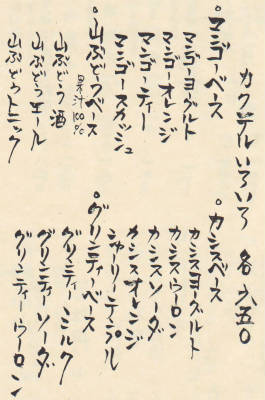 カクテルいろいろ 各六五〇
○マンゴーベース
マンゴーヨーグルト
マンゴーオレンジ
マンゴーティー
マンゴースカッシュ
○山ぶどうベース
果汁100%
山ぶどう酒
山ぶどうエール
山ぶどうトニック
○カシスベース
カシスヨーグルト
カシスウーロン
カシスソーダ
カシスオレンジ
シャーリーテンプル
○グリンティーベース
グリンティーミルク
グリンティーソーダ
グリンティーウーロン